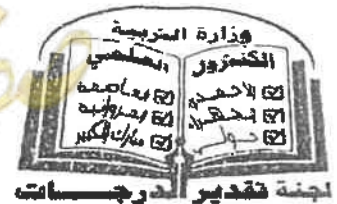 وزارة التربية
الكنترول العلمي
الأحمدي العاصمة
الفروانية
حولي مبارك الكبير
لجنة تقدير الدرجات